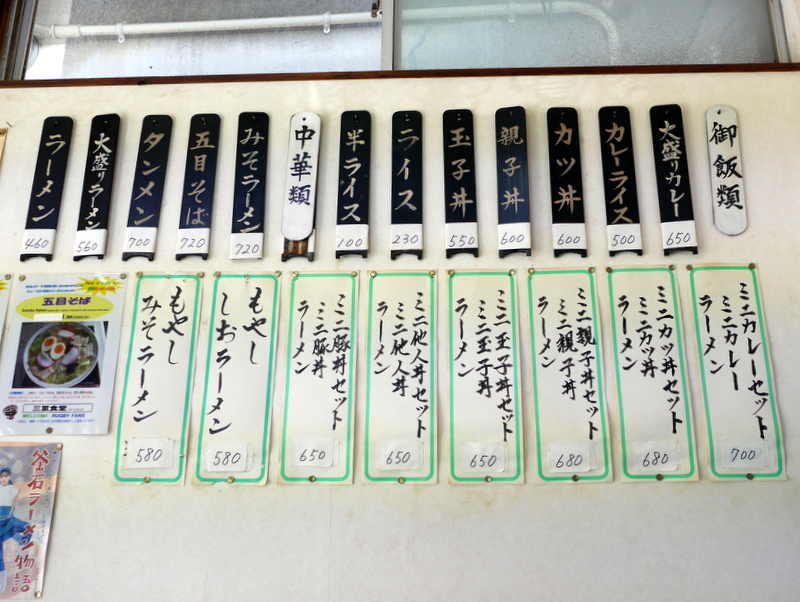 御飯類
大盛りカレー
650
カレーライス
500
カツ丼
600
親子丼
600
玉子丼
550
ライス
230
半ライス
100
中華類
みそラーメン
720
五目そば
720
タンメン
700
大盛りラーメン
560
ラーメン
460
ミニカレーセット
ミニカレー
ラーメン
700
ミニカツ丼セット
ミニカツ丼
ラーメン
680
ミニ親子丼セット
ミニ親子丼
ラーメン
680
ミニ玉子丼セット
ミニ玉子丼
ラーメン
650
ミニ他人丼セット
ミニ他人丼
ラーメン
650
ミニ豚丼セット
ミニ豚丼
ラーメン
650
もやし
しおラーメン
580
もやし
みそラーメン
580
五目そば
食堂
WELCOME RUGBY FANS
釜石ラーメン物語